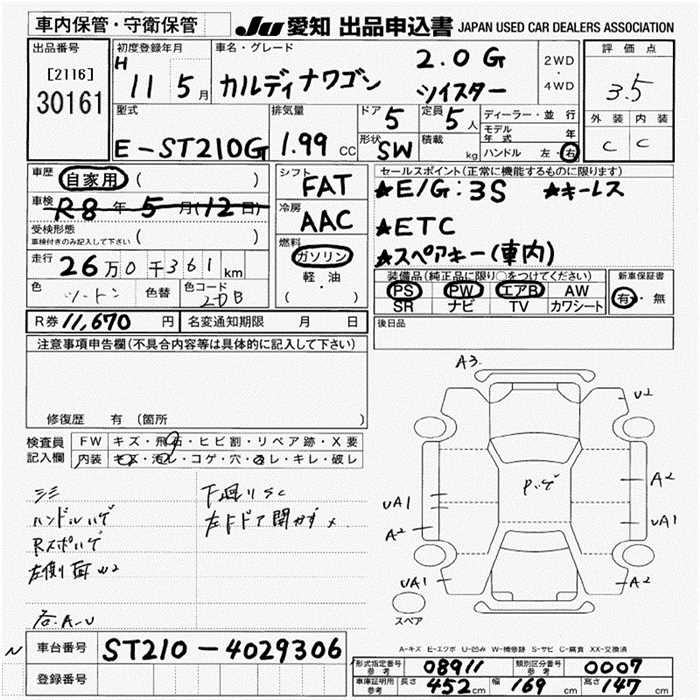 車内保管・守衛保管
JU 愛知 出品申込書 JAPAN USED CAR DEALERS ASSOCIATION
出品番号
[2116]
30161
初度登録年月
H 11 5月
車名・グレード
カルディナワゴン
2.0 G
ツイスター
2WD
・
4WD
評価点
3.5
外装 内装
C C
型式
E-ST210G
排気量
1.99 CC
ドア 5
定員 5人
形状 SW
積載 kg
ディーラー・並行
モデル年式 年
ハンドル 左・右
車歴 自家用 ( )
車検 R8年 5月(12日)
受検形態
車検付きのみ記入して下さい ( )
走行 26万0千361km
色 ツートン 色替 色コード 2DB
シフト FAT
冷房 AAC
燃料
ガソリン
軽・油
( )
セールスポイント(正常に機能するものに限ります)
★E/G:3S ★キーレス
★ETC
★スペアキー(車内)
装備品(純正品に限り○をつけてください)
PS PW エアB AW
SR ナビ TV カワシート
新車保証書
有・無
R券 11,670円 名変通知期限 月 日
後日品
注意事項申告欄(不具合内容等は具体的に記入して下さい)
修復歴 有 (箇所 )
検査員
記入欄
FW キズ・飛石・ヒビ割・リペア跡・X要
内装 キズ・汚レ・コゲ・穴・ヌレ・キレ・破レ
ハンドルハゲ
Rスポハゲ
左側面W2
右.A-U
下廻りSC
左Fドア開かず×
A3
U2
P.ハゲ
A2
UA1
UA1
A2
UA1
A2
スペア
A-キズ E-エクボ U-凹み W-補修跡 S-サビ C-腐食 XX-交換済
N
車台番号 ST210-4029306
登録番号
形式指定番号
参考
08911
類別区分番号
参考
0007
車庫証明用
参考
長さ 452cm 幅 169cm 高さ 147cm